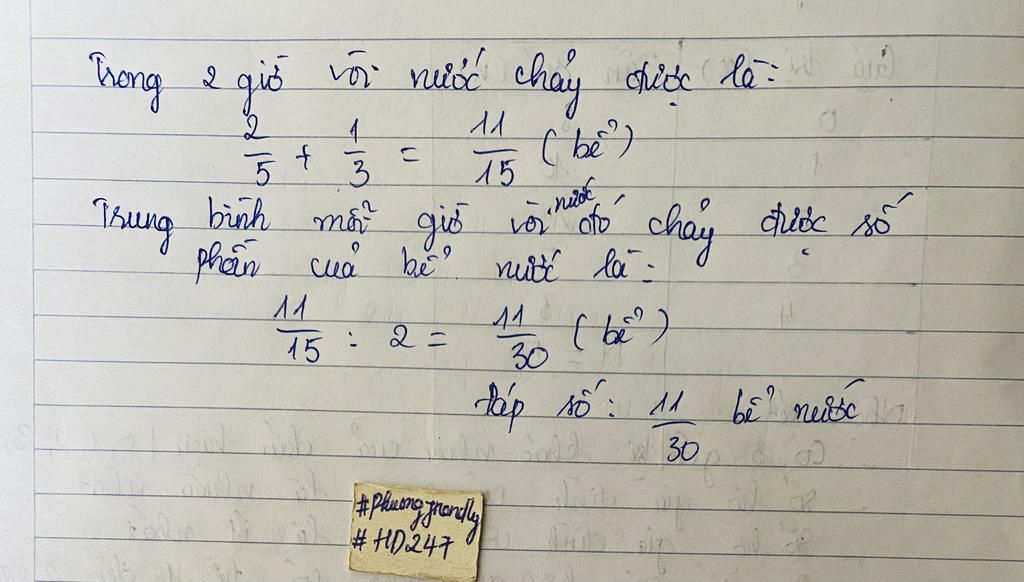 Trong 2 giờ vòi nước chảy được là:
2/5 + 1/3 = 11/15 (bể)
Trung bình mỗi giờ vòi nước đó chảy được số
phần của bể nước là:
11/15 : 2 = 11/30 (bể)
Đáp số: 11/30 bể nước
#Phuongfrendly
#HD247